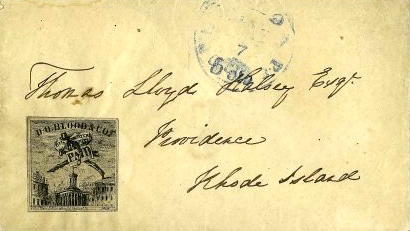 7
Thomas Lloyd Halsey Esqr.
D.O. BLOOD & CO'S
PAID
Providence
Rhode Island